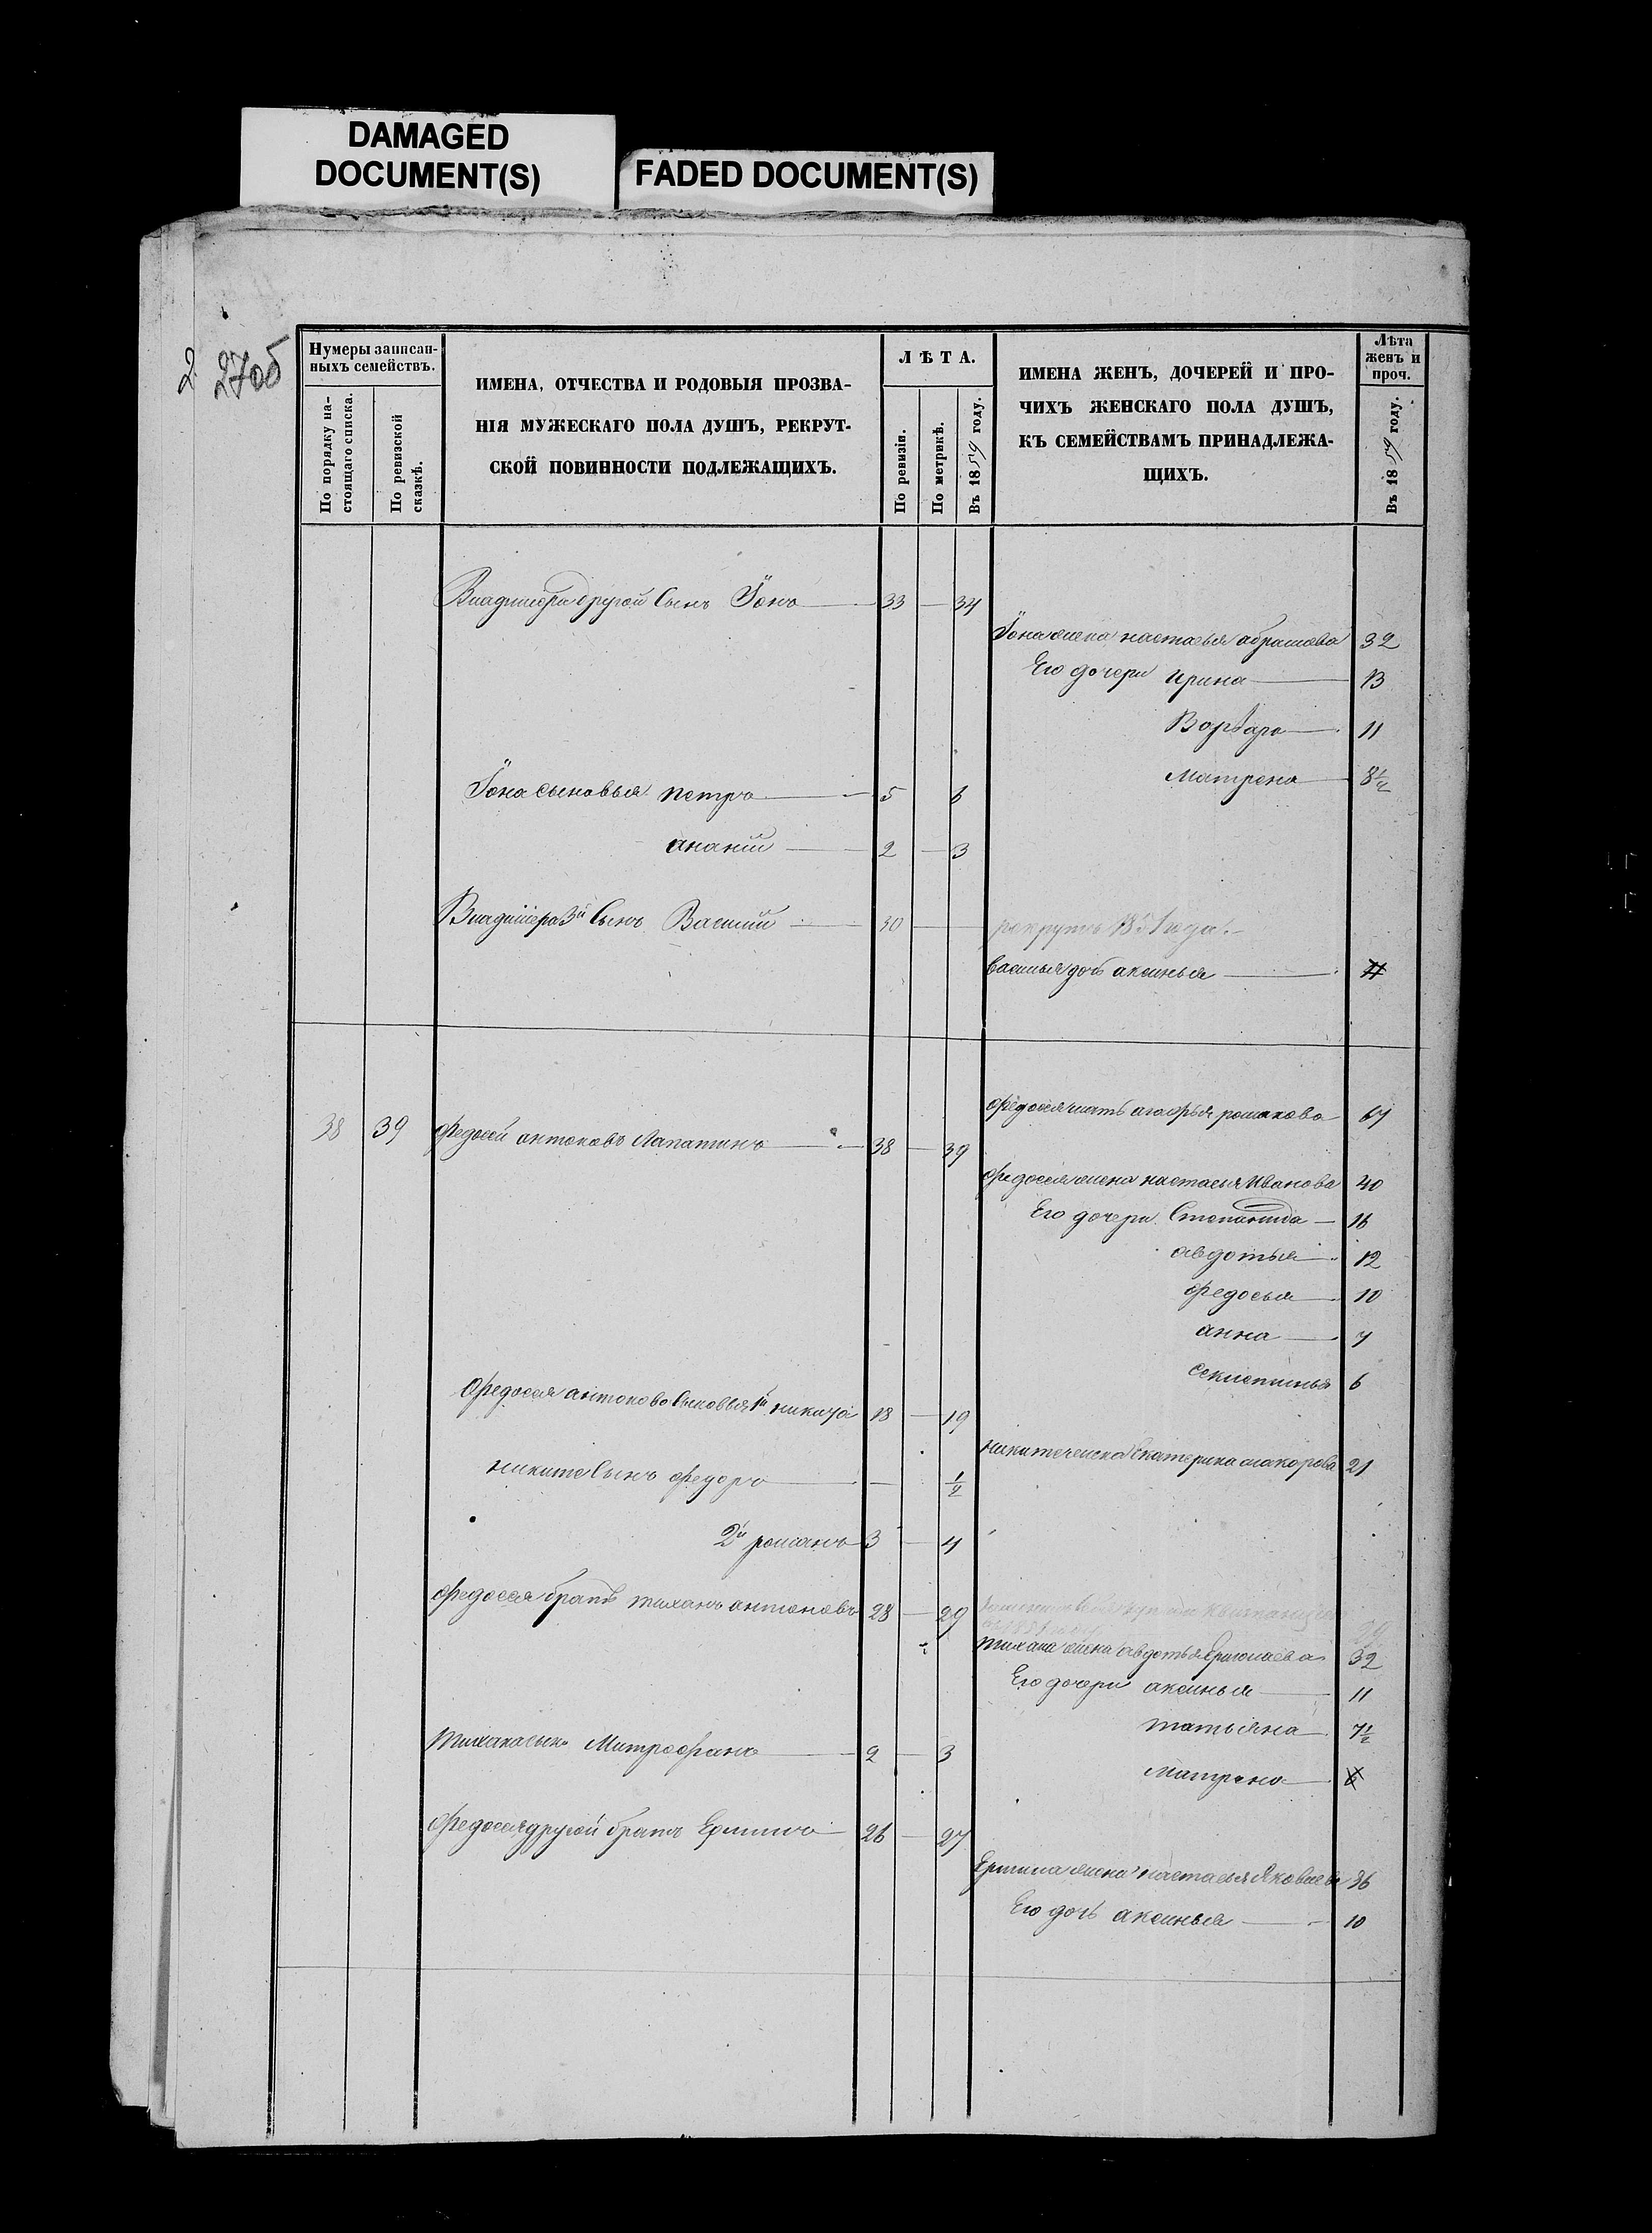 DAMAGED
DOCUMENT(S)
FADED DOCUMENT(S)
2 27об
Нумеры записан-
ныхъ семействъ.
По порядку на-
стоящаго списка.
По ревизской
сказкѣ.
ИМЕНА, ОТЧЕСТВА И РОДОВЫЯ ПРОЗВА-
НІЯ МУЖЕСКАГО ПОЛА ДУШЪ, РЕКРУТ-
СКОЙ ПОВИННОСТИ ПОДЛЕЖАЩИХЪ.
ЛѢТА.
По ревизіи.
По метрикѣ.
Въ 1859 году.
ИМЕНА ЖЕНЪ, ДОЧЕРЕЙ И ПРО-
ЧИХЪ ЖЕНСКАГО ПОЛА ДУШЪ,
КЪ СЕМЕЙСТВАМЪ ПРИНАДЛЕЖА-
ЩИХЪ.
Лѣта
женъ и
проч.
Въ 1859 году.
Владимера другой Сынъ Іонъ 33 — 34
Іона жена настасья абрамова 32
Его дочери ирина 13
Варвара 11
Матрена 8½
Іона сыновья петръ 5 6
ананій 2 — 3
Владимера 3й Сынъ Василий 30 — рекрутъ 1851 года.
василья дочь аксинья 11
федосея мать агафья романова 67
38 39 федосей антоновъ Лапатинъ 38 — 39
федосея жена настасья Иванова 40
Его дочери Степанида — 16
авдотья 12
федосья 10
анна 7
секлетинья 6
Федосея антонова Сыновья 1й никита 18 — 19
никите жена Екатерина макарова 21
никите Сынъ федоръ — ½
2й романъ 3 — 4
федосея братъ тиханъ антоновъ 28 — 29
тихана жена авдотья Ермолаева 32
Его дочери аксинья 11
татьяна 7½
Тихана сынъ Митрофанъ 2 — 3
матрена 6
федосея другой братъ Ермилъ 26 — 27
Ермила жена настасья Яковлева 36
Его дочь аксинья 10